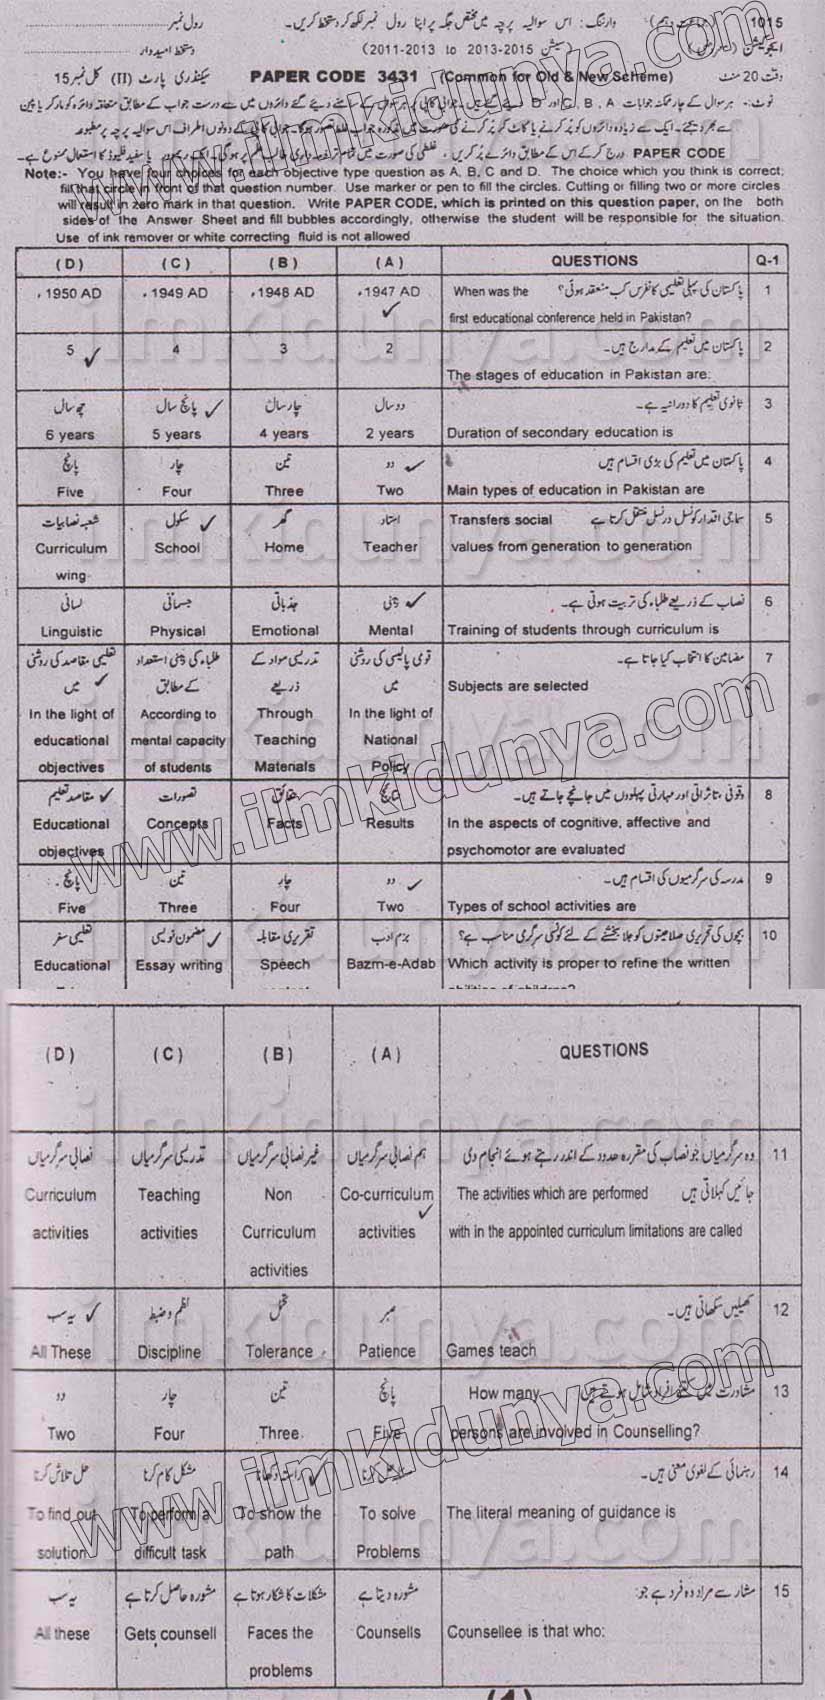 1015 وارننگ : اس سوالیہ پرچہ میں مختص جگہ پر اپنا رول نمبر لکھ کر دستخط کریں۔ رول نمبر
ایجوکیشن (سیشن 2013-2015 to 2011-2013) دستخط امیدوار
وقت 20 منٹ (Common for Old & New Scheme) PAPER CODE 3431 سیکنڈری پارٹ (II) کل نمبر 15
PAPER CODE درج کر کے اس کے مطابق دائرے پُر کریں،
Note:- You have four choices for each objective type question as A, B, C and D. The choice which you think is correct,
fill that circle in front of that question number. Use marker or pen to fill the circles. Cutting or filling two or more circles
will result in zero mark in that question. Write PAPER CODE, which is printed on this question paper, on the both
sides of the Answer Sheet and fill bubbles accordingly, otherwise the student will be responsible for the situation.
Use of ink remover or white correcting fluid is not allowed
(D) (C) (B) (A) QUESTIONS Q-1
1950 AD 1949 AD 1948 AD 1947 AD When was the پاکستان کی پہلی تعلیمی کانفرنس کب منعقد ہوئی؟ 1
first educational conference held in Pakistan?
5 4 3 2 پاکستان میں تعلیم کے مدارج ہیں۔ 2
The stages of education in Pakistan are:
چھ سال پانچ سال چار سال دو سال ثانوی تعلیم کا دورانیہ ہے۔ 3
6 years 5 years 4 years 2 years Duration of secondary education is
پانچ چار تین دو پاکستان میں تعلیم کی بڑی اقسام ہیں 4
Five Four Three Two Main types of education in Pakistan are
شعبہ نصابیات سکول گھر استاد Transfers social سماجی اقدار کو نسل در نسل منتقل کرتا ہے 5
Curriculum School Home Teacher values from generation to generation
wing
لسانی جسمانی جذباتی ذہنی نصاب کے ذریعے طلباء کی تربیت ہوتی ہے۔ 6
Linguistic Physical Emotional Mental Training of students through curriculum is
تعلیمی مقاصد کی روشنی طلباء کی ذہنی استعداد تدریسی مواد کے قومی پالیسی کی روشنی مضامین کا انتخاب کیا جاتا ہے۔ 7
میں کے مطابق ذریعے میں Subjects are selected
In the light of According to Through In the light of
educational mental capacity Teaching National
objectives of students Materials Policy
مقاصد تعلیم تصورات حقائق نتائج وقوفی، تاثراتی اور مہارتی پہلوؤں میں جانچے جاتے ہیں۔ 8
Educational Concepts Facts Results In the aspects of cognitive, affective and
objectives psychomotor are evaluated
پانچ تین چار دو مدرسہ کی سرگرمیوں کی اقسام ہیں۔ 9
Five Three Four Two Types of school activities are
تعلیمی سفر مضمون نویسی تقریری مقابلہ بزم ادب بچوں کی تحریری صلاحیتوں کو جلا بخشنے کے لئے کونسی سرگرمی مناسب ہے؟ 10
Educational Essay writing Speech Bazm-e-Adab Which activity is proper to refine the written
(D) (C) (B) (A) QUESTIONS
نصابی سرگرمیاں تدریسی سرگرمیاں غیر نصابی سرگرمیاں ہم نصابی سرگرمیاں وہ سرگرمیاں جو نصاب کی مقررہ حدود کے اندر رہتے ہوئے انجام دی 11
Curriculum Teaching Non Co-curriculum The activities which are performed جائیں کہلاتی ہیں
activities activities Curriculum activities with in the appointed curriculum limitations are called
activities
یہ سب نظم و ضبط تحمل صبر کھیلیں سکھاتی ہیں۔ 12
All These Discipline Tolerance Patience Games teach
دو چار تین پانچ How many مشاورت میں کتنے افراد شامل ہوتے ہیں 13
Two Four Three Five persons are involved in Counselling?
حل تلاش کرنا مشکل کام کرنا راستہ دکھانا رہنمائی کے لغوی معنی ہیں۔ 14
To find out To perform a To show the To solve The literal meaning of guidance is
solution difficult task path Problems
یہ سب مشورہ حاصل کرتا ہے مشکلات کا شکار ہوتا ہے مشورہ دیتا ہے مشار سے مراد وہ فرد ہے جو: 15
All these Gets counsell Faces the Counsells Counsellee is that who:
problems
www.ilmkidunya.com
ilmkidunya.com